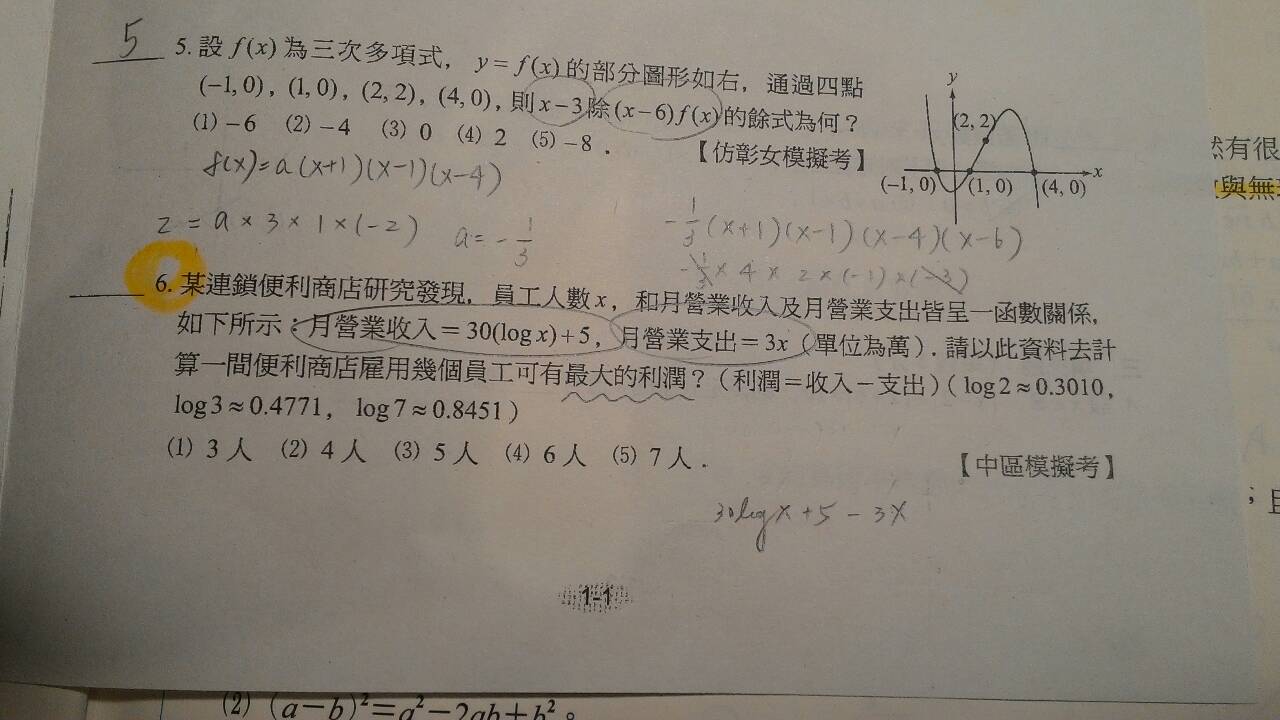 5
5. 設 f(x) 為三次多項式, y=f(x)的部分圖形如右, 通過四點
(-1,0), (1,0), (2,2), (4,0), 則x-3除(x-6)f(x)的餘式為何?
(1) -6 (2) -4 (3) 0 (4) 2 (5) -8.
【仿彰女模擬考】
y
(2,2)
x
(-1,0)
(1,0)
(4,0)
f(x)=a(x+1)(x-1)(x-4)
2 = a×3×1×(-2) a=-1/3
-1/3(x+1)(x-1)(x-4)(x-6)
-1/3×4×2×(-1)×(-3)
6. 某連鎖便利商店研究發現, 員工人數x, 和月營業收入及月營業支出皆呈一函數關係,
如下所示:月營業收入=30(log x)+5, 月營業支出=3x(單位為萬). 請以此資料去計
算一間便利商店雇用幾個員工可有最大的利潤?(利潤=收入-支出)(log2≈0.3010,
log3≈0.4771, log7≈0.8451)
(1) 3人 (2) 4人 (3) 5人 (4) 6人 (5) 7人.
【中區模擬考】
30logx+5-3x
1-1
(2) (a-b)²=a²-2ab+b²。
然有很
與無
;且